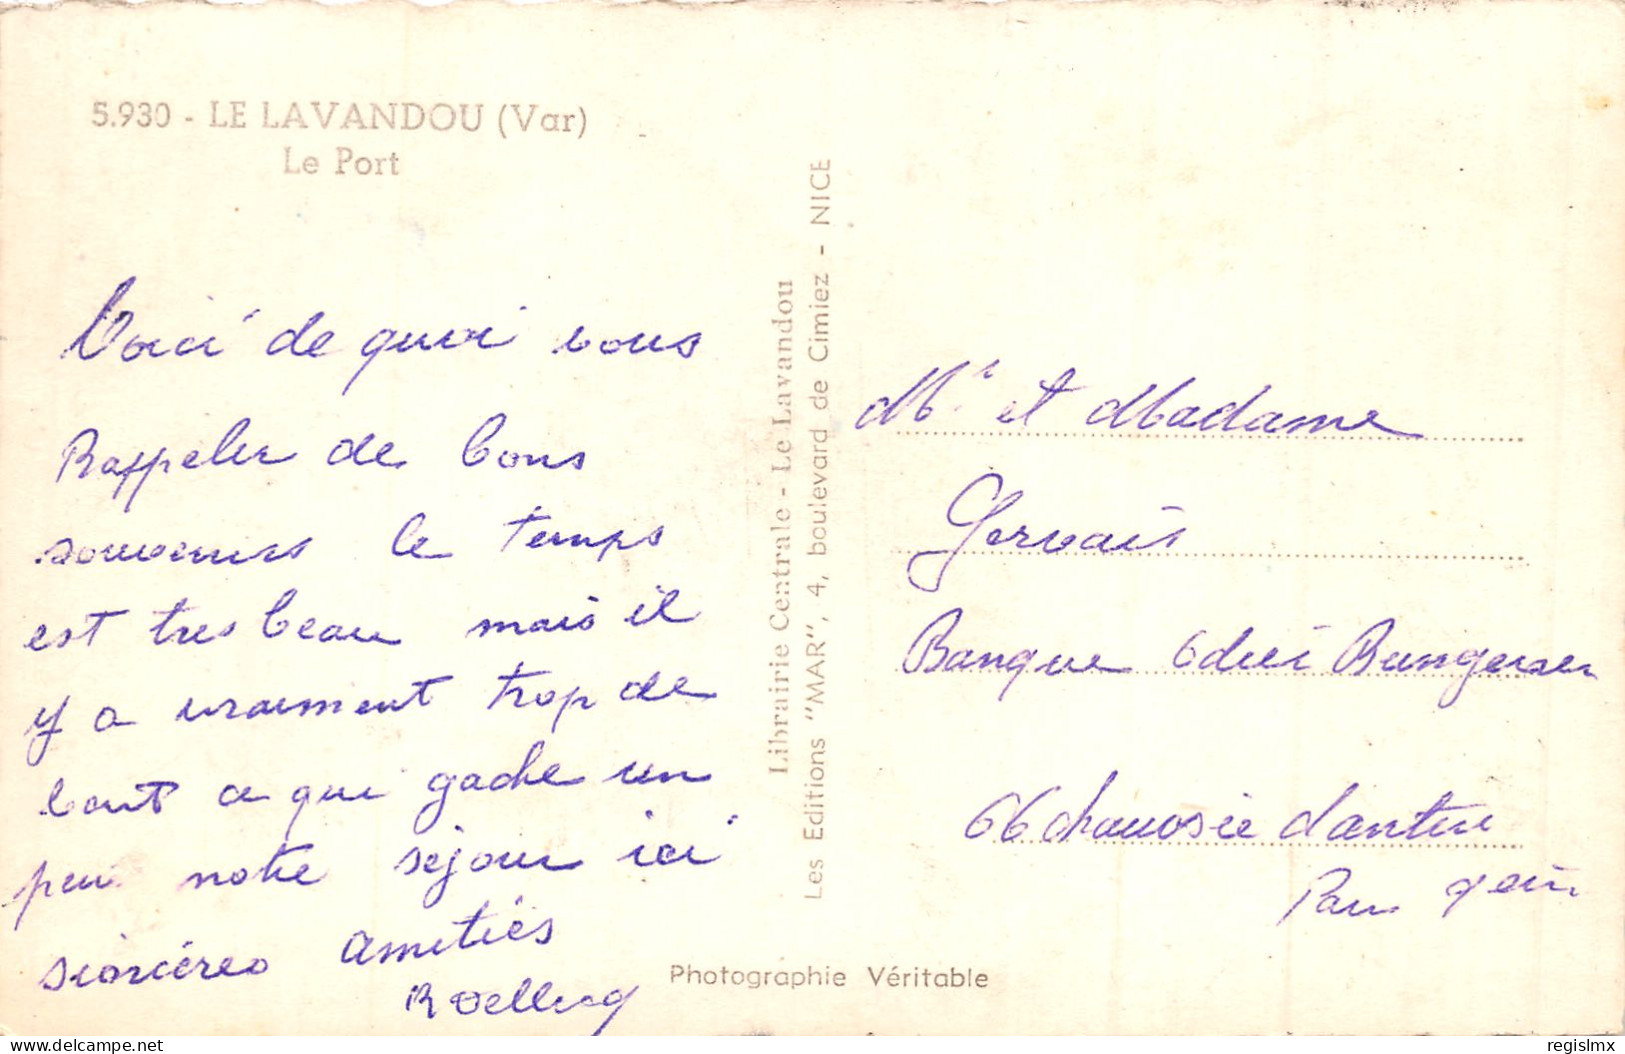 5.930 - LE LAVANDOU (Var)
Le Port
Voici de quoi vous
Rappeler de bons
souvenirs le temps
est tres beau mais il
y a vraiment trop de
ce qui gache un
peu notre séjour ici
sincéres amitiés
Librairie Centrale - Le Lavandou
Les Editions "MAR", 4, boulevard de Cimiez - NICE
Photographie Véritable
Mr et Madame
Gervais
Banque
66 chaussée dantin
Paris
delcampe.net
regislmx